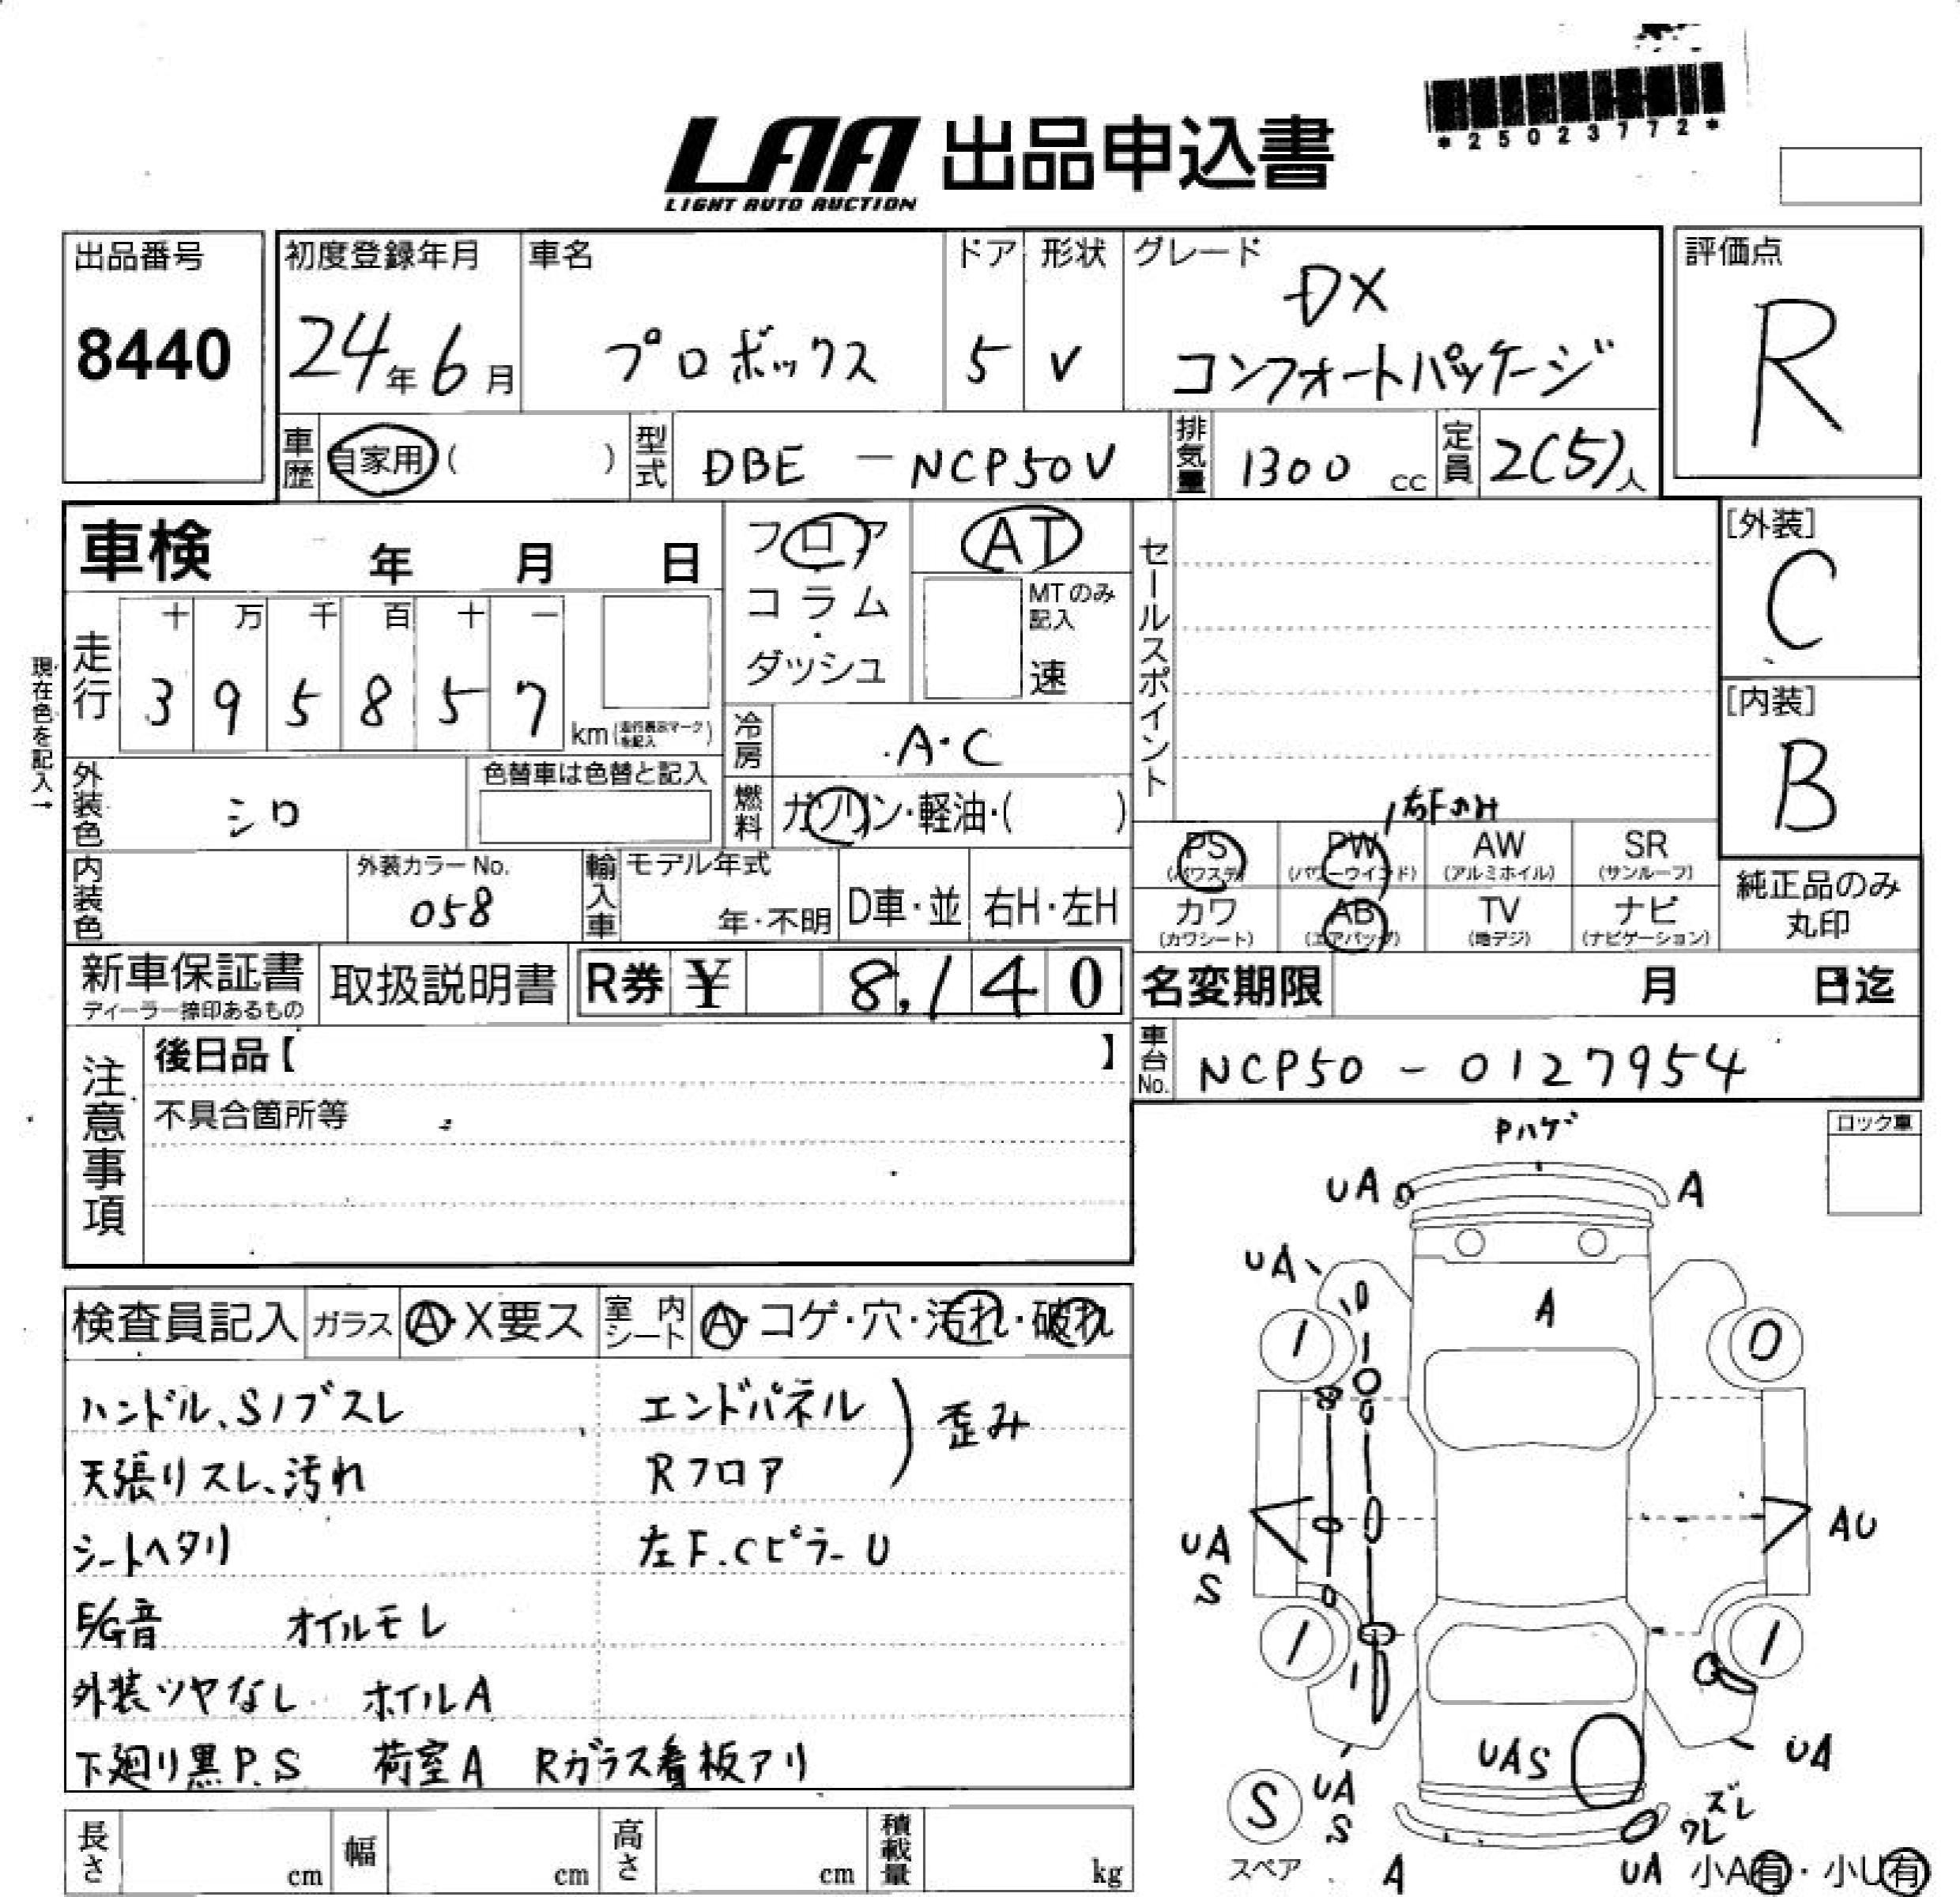 *25023772*
LAA 出品申込書
LIGHT AUTO AUCTION
出品番号
8440
初度登録年月
24年6月
車名
プロボックス
ドア
5
形状
V
グレード
DX
コンフォートパッケージ
評価点
R
車歴
自家用( )
型式
DBE - NCP50V
排気量
1300 cc
定員
2(5)人
車検 年 月 日
フロア
コラム
・
ダッシュ
AT
MTのみ
記入
速
セールスポイント
[外装]
C
[内装]
B
現在色を記入→
走行
十 万 千 百 十 一
3 9 5 8 5 7
km(走行表示マークを記入)
冷房
A・C
外装色
シロ
色替車は色替と記入
燃料
ガソリン・軽油・( )
右Fのみ
PS
(パワステ)
PW
(パワーウインド)
AW
(アルミホイル)
SR
(サンルーフ)
カワ
(カワシート)
AB
(エアバッグ)
TV
(地デジ)
ナビ
(ナビゲーション)
純正品のみ
丸印
内装色
外装カラーNo.
058
輸入車
モデル年式
年・不明
D車・並
右H・左H
新車保証書
ディーラー捺印あるもの
取扱説明書
R券 ¥ 8,140
名変期限 月 日迄
注意事項
後日品【 】
不具合箇所等
車台No.
NCP50 - 0127954
ロック車
検査員記入
ガラス
A・X要ス
室内シート
A・コゲ・穴・汚れ・破れ
ハンドル、Sノブスレ
天張りスレ、汚れ
シートヘタリ
E/G音 オイルモレ
外装ツヤなし ホイルA
下廻り黒P.S 荷室A Rガラス看板アリ
エンドパネル
Rフロア
歪み
左F.CピラーU
Pハゲ
UA
A
UA
A
1
0
UA
S
AU
1
1
UAS
UA
UA
S
S
スペア
A
ズレ
ワレ
UA
小A有・小U有
長さ cm
幅 cm
高さ cm
積載量 kg